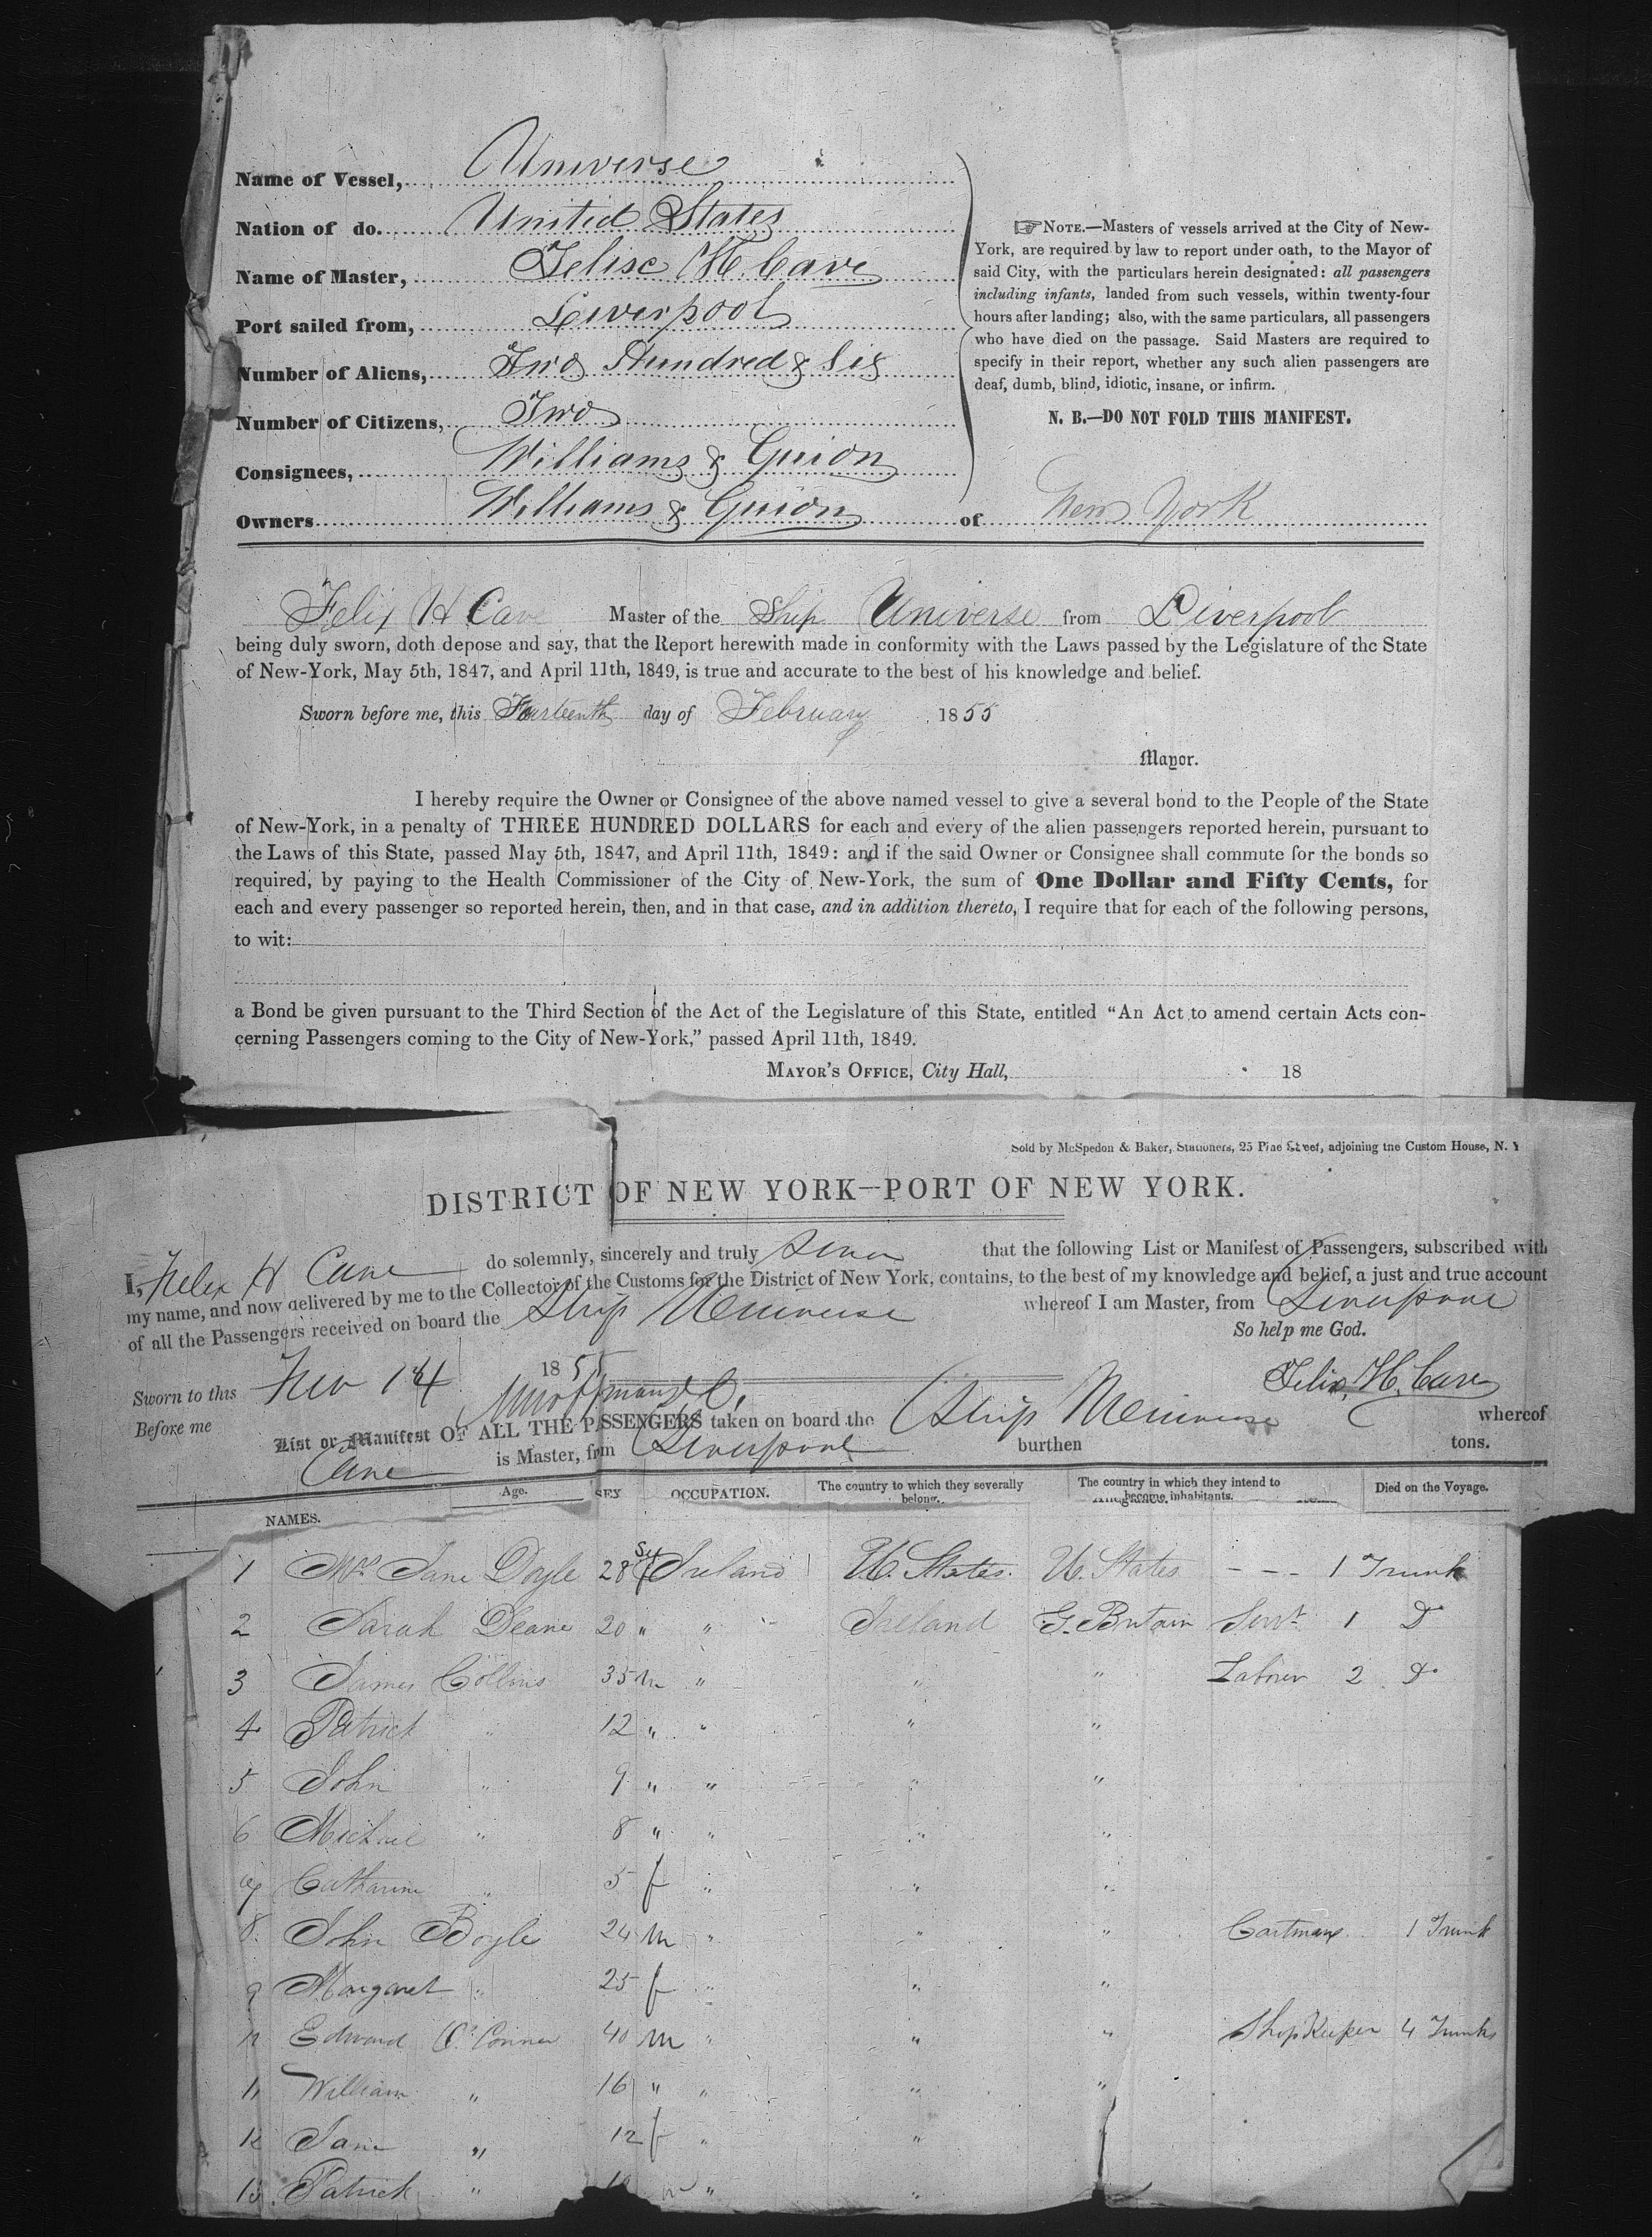 Name of Vessel, Universe
Nation of do. United States
Name of Master, Felix H. Cave
Port sailed from, Liverpool
Number of Aliens, Two Hundred & Six
Number of Citizens, Two
Consignees, Williams & Guion
Owners Williams & Guion of New York
☞NOTE.—Masters of vessels arrived at the City of New-
York, are required by law to report under oath, to the Mayor of
said City, with the particulars herein designated: all passengers
including infants, landed from such vessels, within twenty-four
hours after landing; also, with the same particulars, all passengers
who have died on the passage. Said Masters are required to
specify in their report, whether any such alien passengers are
deaf, dumb, blind, idiotic, insane, or infirm.
N. B.—DO NOT FOLD THIS MANIFEST.
Felix H Cave Master of the Ship Universe from Liverpool
being duly sworn, doth depose and say, that the Report herewith made in conformity with the Laws passed by the Legislature of the State
of New-York, May 5th, 1847, and April 11th, 1849, is true and accurate to the best of his knowledge and belief.
Sworn before me, this Fourteenth day of February 1855
Mayor.
I hereby require the Owner or Consignee of the above named vessel to give a several bond to the People of the State
of New-York, in a penalty of THREE HUNDRED DOLLARS for each and every of the alien passengers reported herein, pursuant to
the Laws of this State, passed May 5th, 1847, and April 11th, 1849: and if the said Owner or Consignee shall commute for the bonds so
required, by paying to the Health Commissioner of the City of New-York, the sum of One Dollar and Fifty Cents, for
each and every passenger so reported herein, then, and in that case, and in addition thereto, I require that for each of the following persons,
to wit:
a Bond be given pursuant to the Third Section of the Act of the Legislature of this State, entitled “An Act to amend certain Acts con-
cerning Passengers coming to the City of New-York,” passed April 11th, 1849.
MAYOR'S OFFICE, City Hall, 18
Sold by McSpedon & Baker, Stationers, 25 Pine Street, adjoining the Custom House, N. Y
DISTRICT OF NEW YORK—PORT OF NEW YORK.
I, Felix H Cave do solemnly, sincerely and truly swear that the following List or Manifest of Passengers, subscribed with
my name, and now delivered by me to the Collector of the Customs for the District of New York, contains, to the best of my knowledge and belief, a just and true account
of all the Passengers received on board the Ship Universe whereof I am Master, from Liverpool
So help me God.
Sworn to this 14 1855
Before me
Felix H. Cave
List or Manifest OF ALL THE PASSENGERS taken on board the Ship Universe whereof
Cave is Master, from Liverpool burthen tons.
NAMES. Age. SEX OCCUPATION. The country to which they severally belong. The country in which they intend to become inhabitants. Died on the Voyage.
1 Mrs Jane Doyle 28 f Ireland U. States. U. States - - - 1 Trunk
2 Sarah Deane 20 " " Ireland G. Britain Servt 1 Do
3 James Collins 35 m " " " Laborer 2 Do
4 Patrick " 12 " " " "
5 John " 9 " " " "
6 Michael " 8 " " " "
7 Catharine " 5 f " " "
8 John Boyle 24 m " " " Cartman 1 Trunk
9 Margaret " 25 f " " "
Edward O'Conner 40 m " " " Shop Keeper 4 Trunks
11 William " 16 " " " "
12 Jane " 12 f " "
13 Patrick " " "